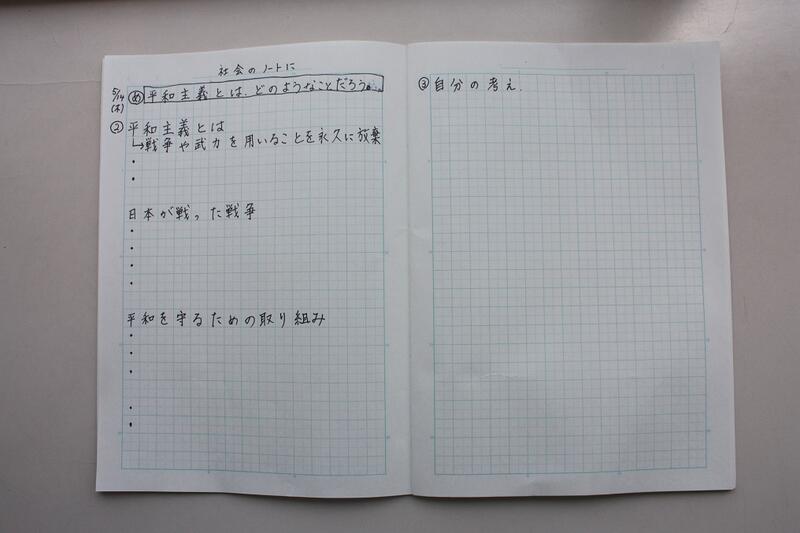 社会のノートに
5/14
(木)
め 平和主義とは、どのようなことだろう。
② 平和主義とは
↳戦争や武力を用いることを永久に放棄
・
・
日本が戦った戦争
・
・
・
・
平和を守るための取り組み
・
・
・
・
・
③ 自分の考え.